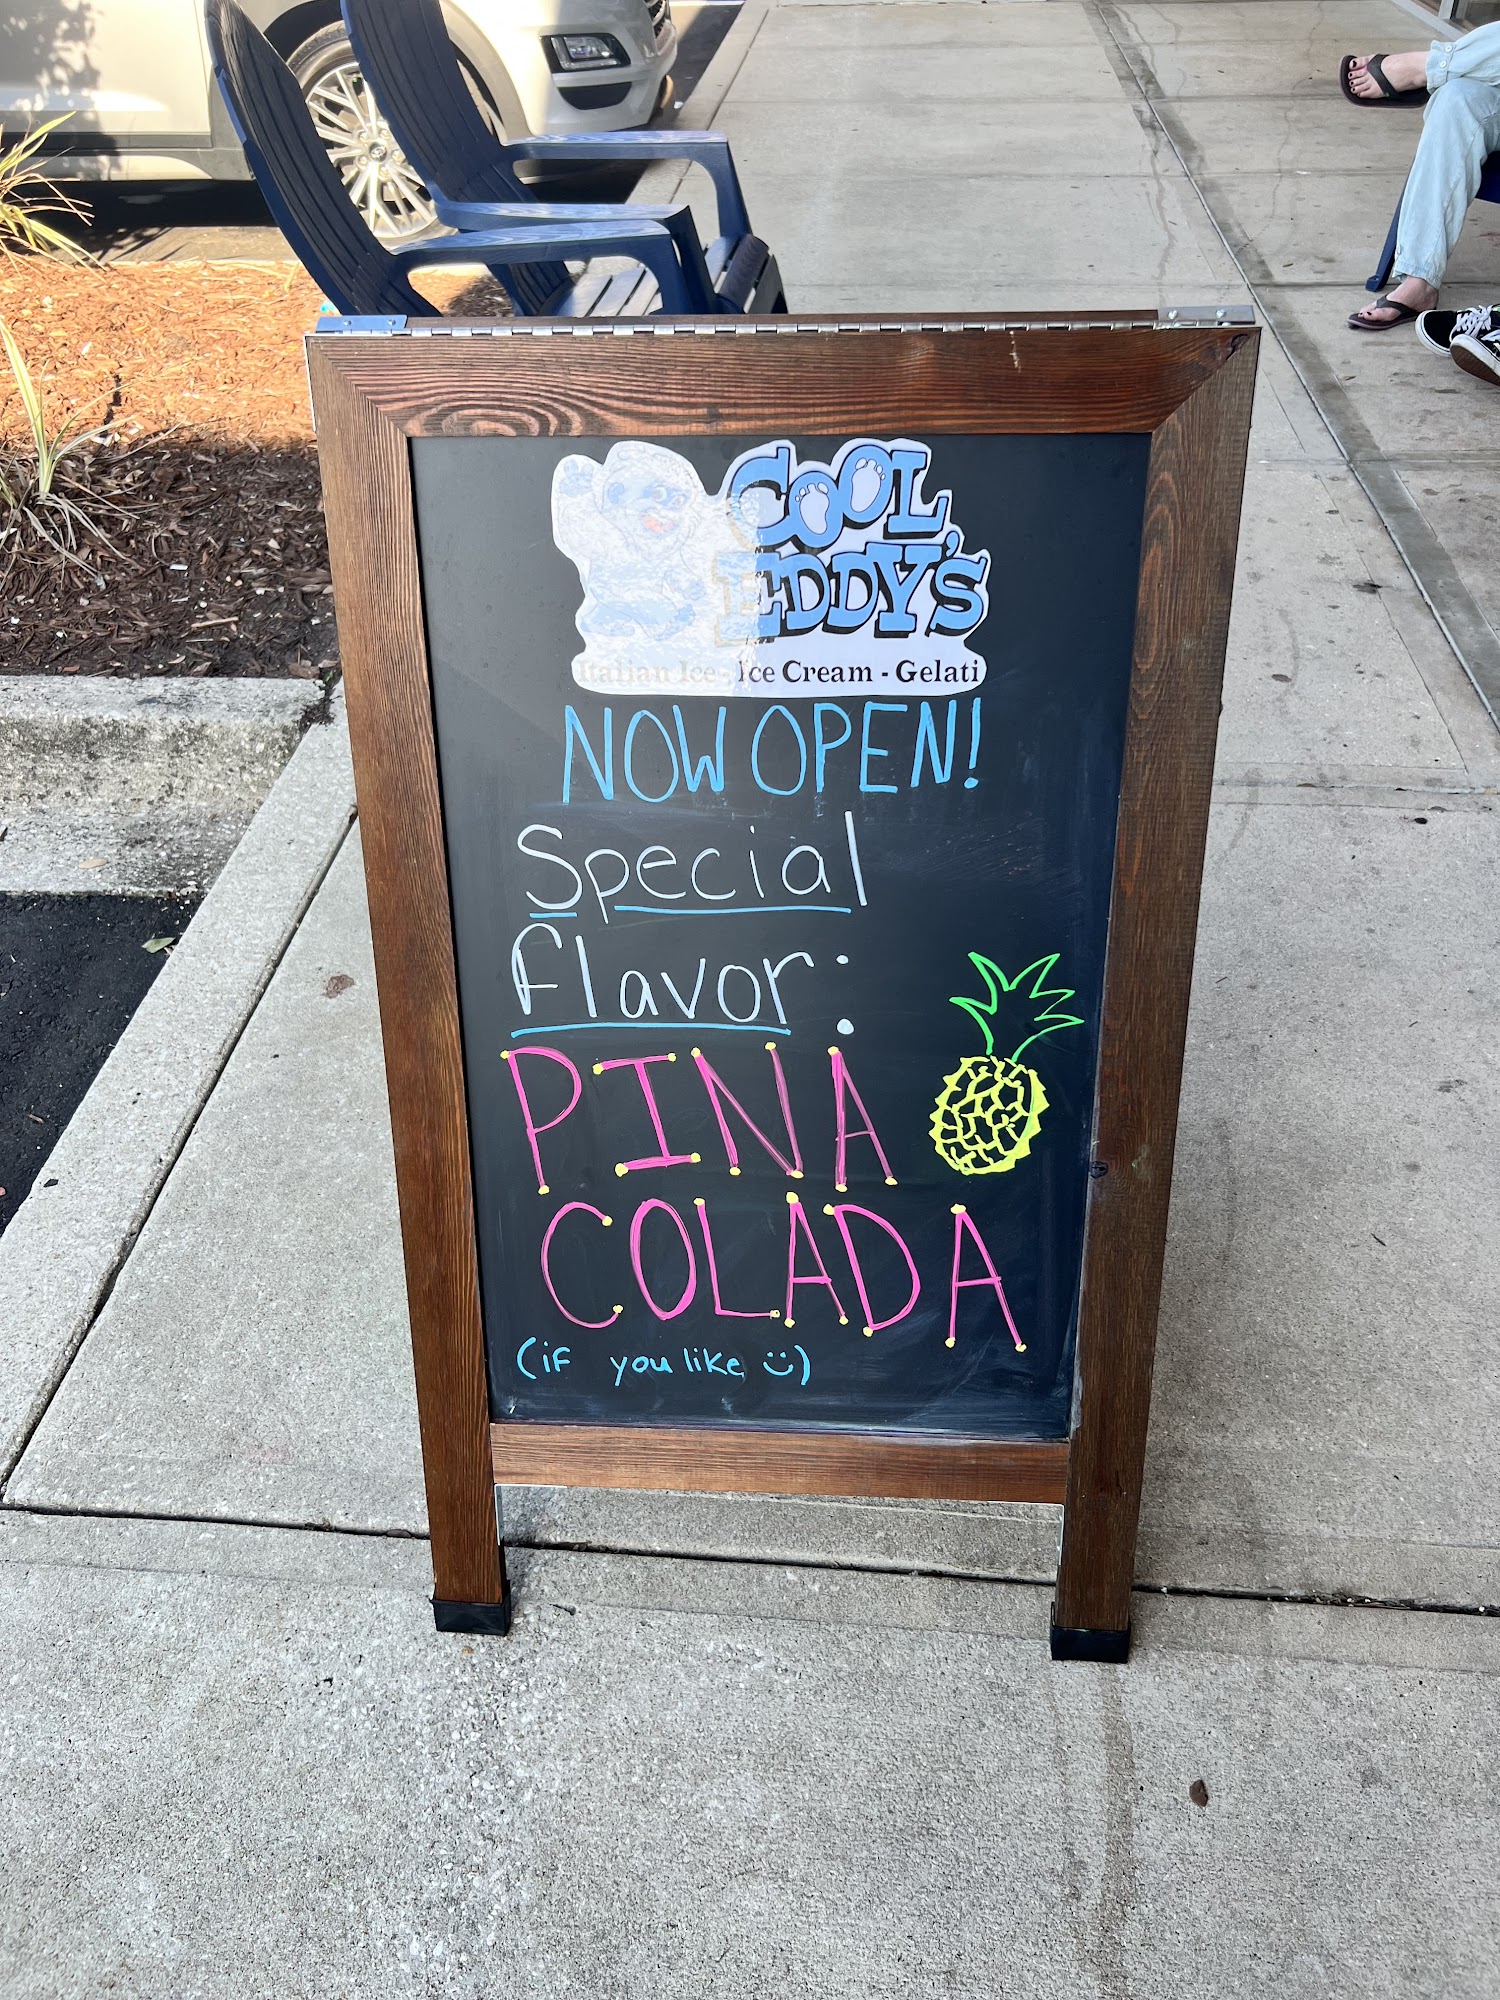 COOL
EDDY'S
Italian Ice - Ice Cream - Gelati
NOW OPEN!
Special
flavor:
PINA
COLADA
(if you like :))